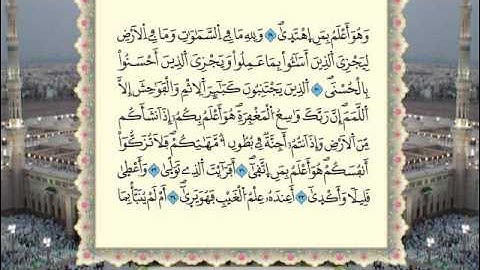 وَهُوَ أَعْلَمُ بِمَنِ اِهْتَد۪ىٰۖ ٢٩ وَلِلهِ مَا فِي السَّمَٰوَٰتِ وَمَا فِي الْأَرْضِ
لِيَجْزِيَ الَّذِينَ أَسَٰٓـُٔوا بِمَا عَمِلُوا وَيَجْزِيَ الَّذِينَ أَحْسَنُوا
بِالْحُسْنَىۖ ٣٠ الَّذِينَ يَجْتَنِبُونَ كَبَٰٓئِرَ الْإِثْمِ وَالْفَوَٰحِشَ إِلَّا
اللَّمَمَۖ إِنَّ رَبَّكَ وَٰسِعُ الْمَغْفِرَةِۖ هُوَ أَعْلَمُ بِكُمُۥ إِذَ اَنشَأَكُم
مِّنَ الْأَرْضِ وَإِذَ اَنتُمُۥ أَجِنَّةٞ فِي بُطُونِ أُمَّهَٰتِكُمْۖ فَلَا تُزَكُّوا
أَنفُسَكُمْۖ هُوَ أَعْلَمُ بِمَنِ اِتَّقَىٰۖ ٣١ أَفَرَٰيْتَ الَّذِي تَوَلَّىٰ ٣٢ وَأَعْطَىٰ
قَلِيلًا وَأَكْدَىٰٓۖ ٣٣ أَعِندَهُۥ عِلْمُ الْغَيْبِ فَهُوَ يَرَىٰٓۖ ٣٤ أَمْ لَمْ يُنَبَّأْ بِمَا